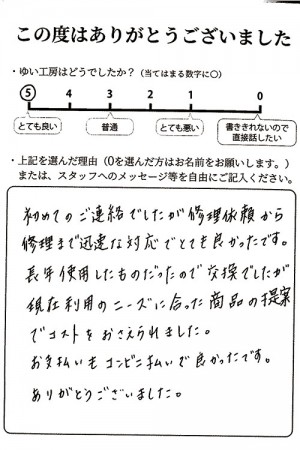 この度はありがとうございました
・ゆい工房はどうでしたか？（当てはまる数字に○）
5 4 3 2 1 0
とても良い 普通 とても悪い 書ききれないので直接話したい
・上記を選んだ理由（0を選んだ方はお名前をお願いします。）
または、スタッフへのメッセージ等を自由にご記入ください。
初めてのご連絡でしたが修理依頼から
修理まで迅速な対応でとても良かったです。
長年使用したものだったので交換でしたが
現在利用のニーズに合った商品の提案
でコストをおさえられました。
お支払いもコンビニ払いで良かったです。
ありがとうございました。